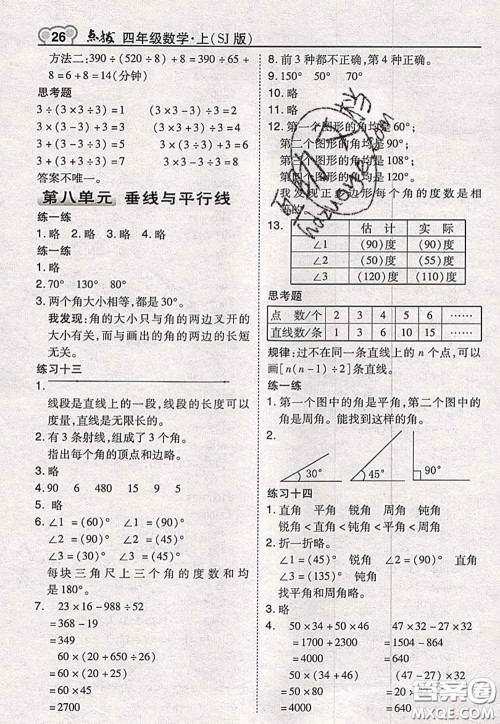 26 点拨 四年级数学·上(SJ版)
方法二:390÷(520÷8)+8=390÷65+
8=6+8=14(分钟)
思考题
3÷(3×3÷3)=1 3×(3+3÷3)=12
3×(3÷3+3)=12 3+(3×3÷3)=6
3+3÷(3÷3)=6 3+(3÷3×3)=6
3÷(3÷3×3)=1
答案不唯一。
第八单元 垂线与平行线
练一练
1.略 2.略 3.略 4.略
练一练
1.略
2.70° 130° 80°
3.两个角大小相等,都是30°。
我发现:角的大小只与角的两边叉开的
大小有关,而与画出的角的两边的长短
无关。
练习十三
1.
线段是直线上的一段,线段的长度可以
度量,直线是无限长的。
2.有3条射线,组成了3个角。
指出每个角的顶点和边略。
3.略
4.90 60 480 15 9 5
5.略
6.∠1=(60)° ∠2=(90)°
∠3=(30)° ∠1=(45)°
∠2=(90)° ∠3=(45)°
每块三角尺上三个角的度数和均
是180°。
7. 23×16-988÷52
=368-19
=349
60×(20+350÷14)
=60×(20+25)
=60×45
=2700
8.前3种都不正确。第4种正确。
9.150° 50° 70°
10.略
11.略
12.第一个图形的角均是60°;
第二个图形的角均是90°;
第三个图形的角均是108°;
第四个图形的角均是120°。
我发现正
边形每个角的度数是相
13.
估计 实际
∠1 (90)度 (90)度
∠2 (50)度 (60)度
∠3 (120)度 (110)度
思考题
点数/个 2 3 4 5 6 ……
直线数/条 1 3 6 10 15 ……
规律:过不在同一条直线上的n个点,可以
画[n(n-1)÷2]条直线。
练一练
1.第一个图中的角是平角,第二个图中的
角是周角。能找到这样的角。
2.
30° 45° 90°
练习十四
1.直角 平角 锐角 周角 钝角
锐角<直角<钝角<平角<周角
2.折一折略。
∠1=(45)° 锐角 ∠2=(90)° 直角
∠3=(135)° 钝角
找出平角和周角略。
3.略
4. 50×34+50×46 47×32-27×32
=1700+2300 =1504-864
=4000 =640
50×(34+46) (47-27)×32
=50×80 =20×32
=4000 =640
答案圈
MXQE.COM